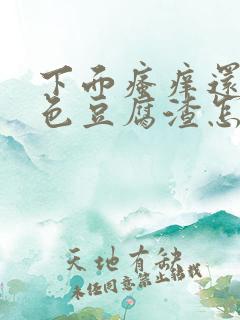 下而瘙痒還
色豆腐渣怎
天地有缺
未经同意禁止转载